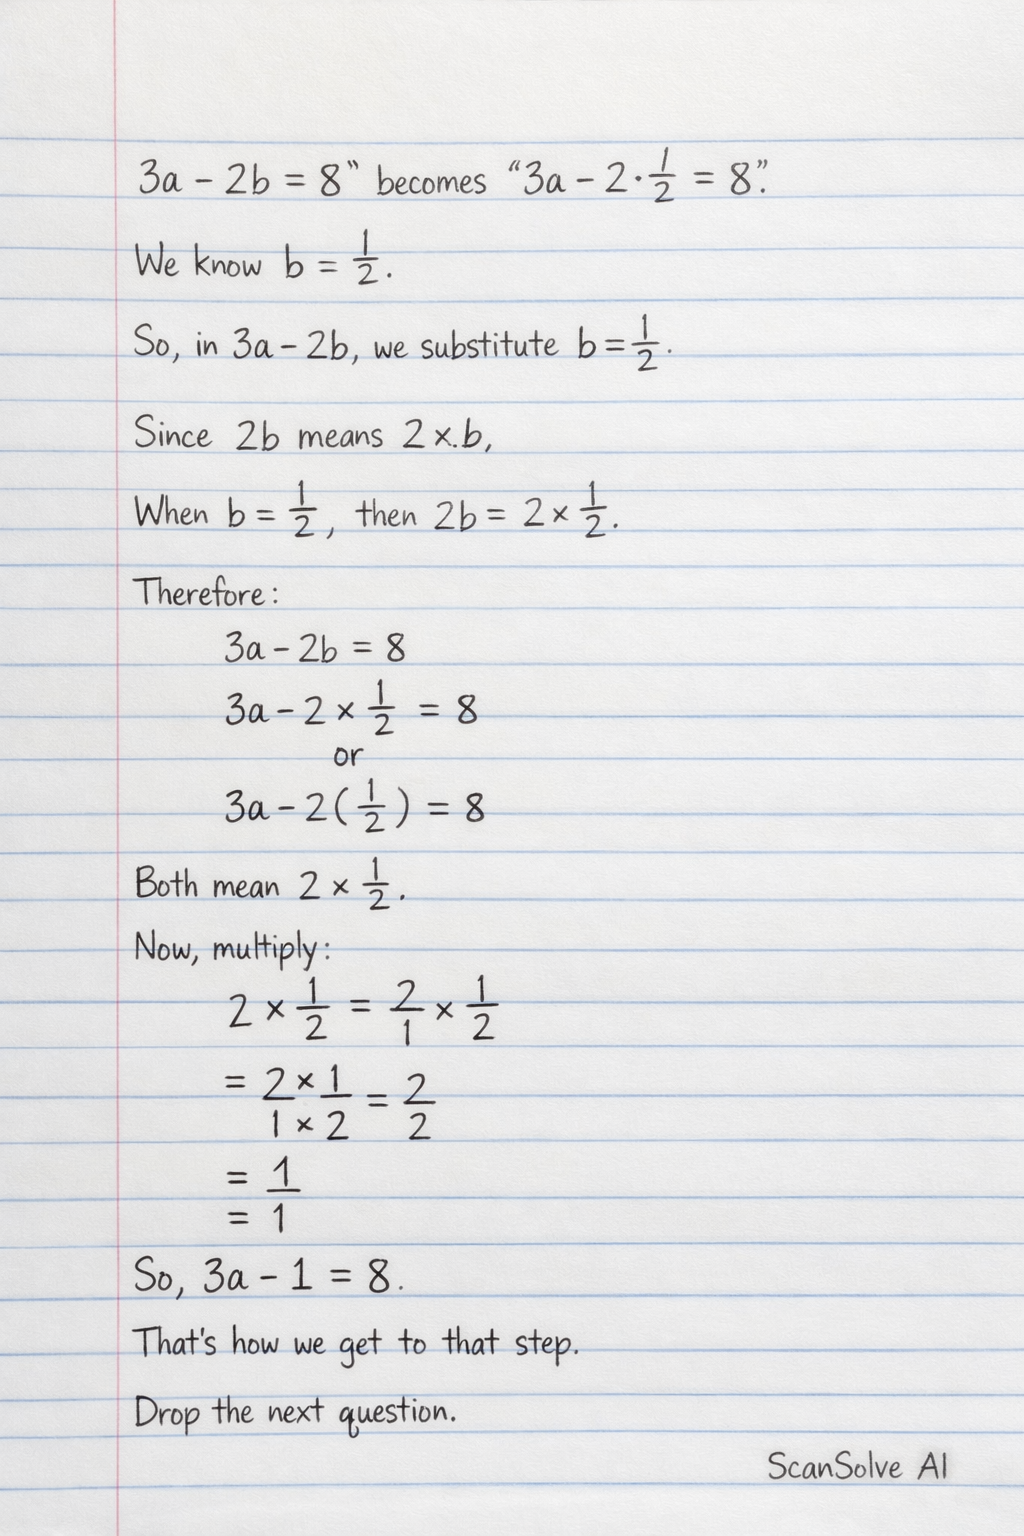 3a - 2b = 8” becomes “3a - 2 · 1/2 = 8”.
We know b = 1/2.
So, in 3a - 2b, we substitute b = 1/2.
Since 2b means 2 ×.b,
When b = 1/2, then 2b = 2 × 1/2.
Therefore:
3a - 2b = 8
3a - 2 × 1/2 = 8
or
3a - 2(1/2) = 8
Both mean 2 × 1/2.
Now, multiply:
2 × 1/2 = 2/1 × 1/2
= 2 × 1/1 × 2 = 2/2
= 1
= 1
So, 3a - 1 = 8.
That's how we get to that step.
Drop the next question.
ScanSolve AI